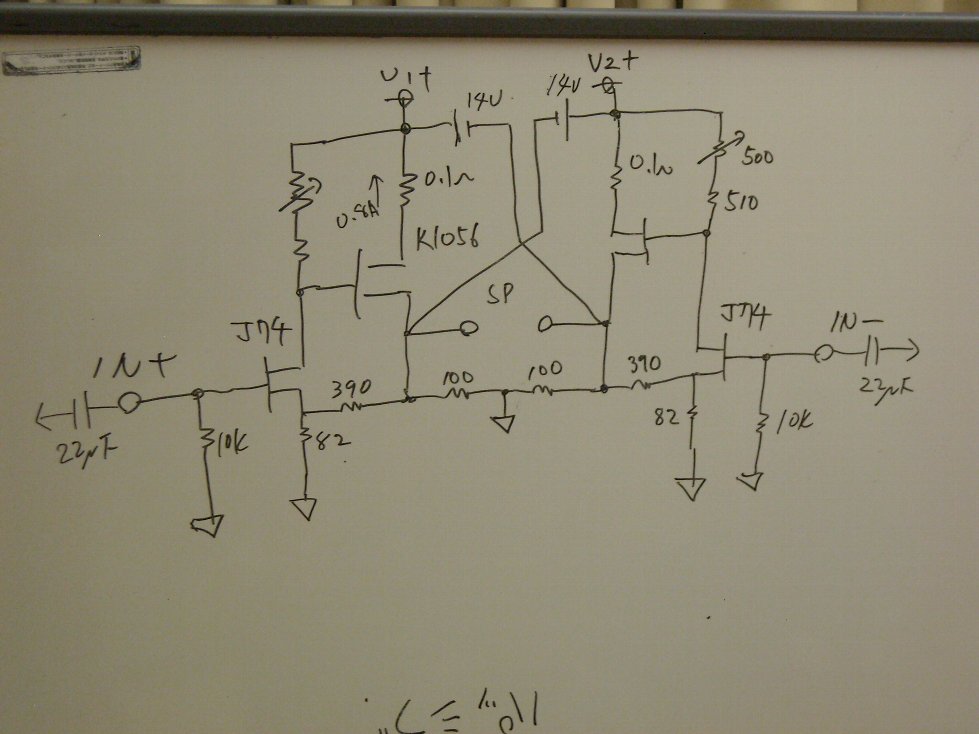 V1+
V2+
14V
14V
0.1Ω
0.1Ω
500
0.8A
510
K1056
SP
J74
J74
IN+
IN-
390
100
100
390
22μF
10K
82
82
10K
22μF